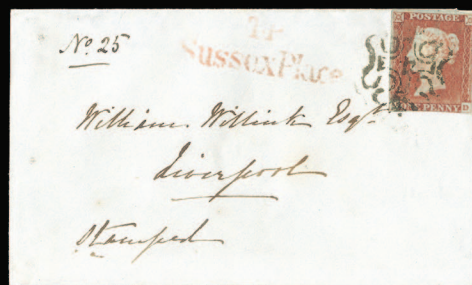 No 25
T.P
Sussex Place
POSTAGE
PENNY D
William Willink Esqr
Liverpool
Stamped